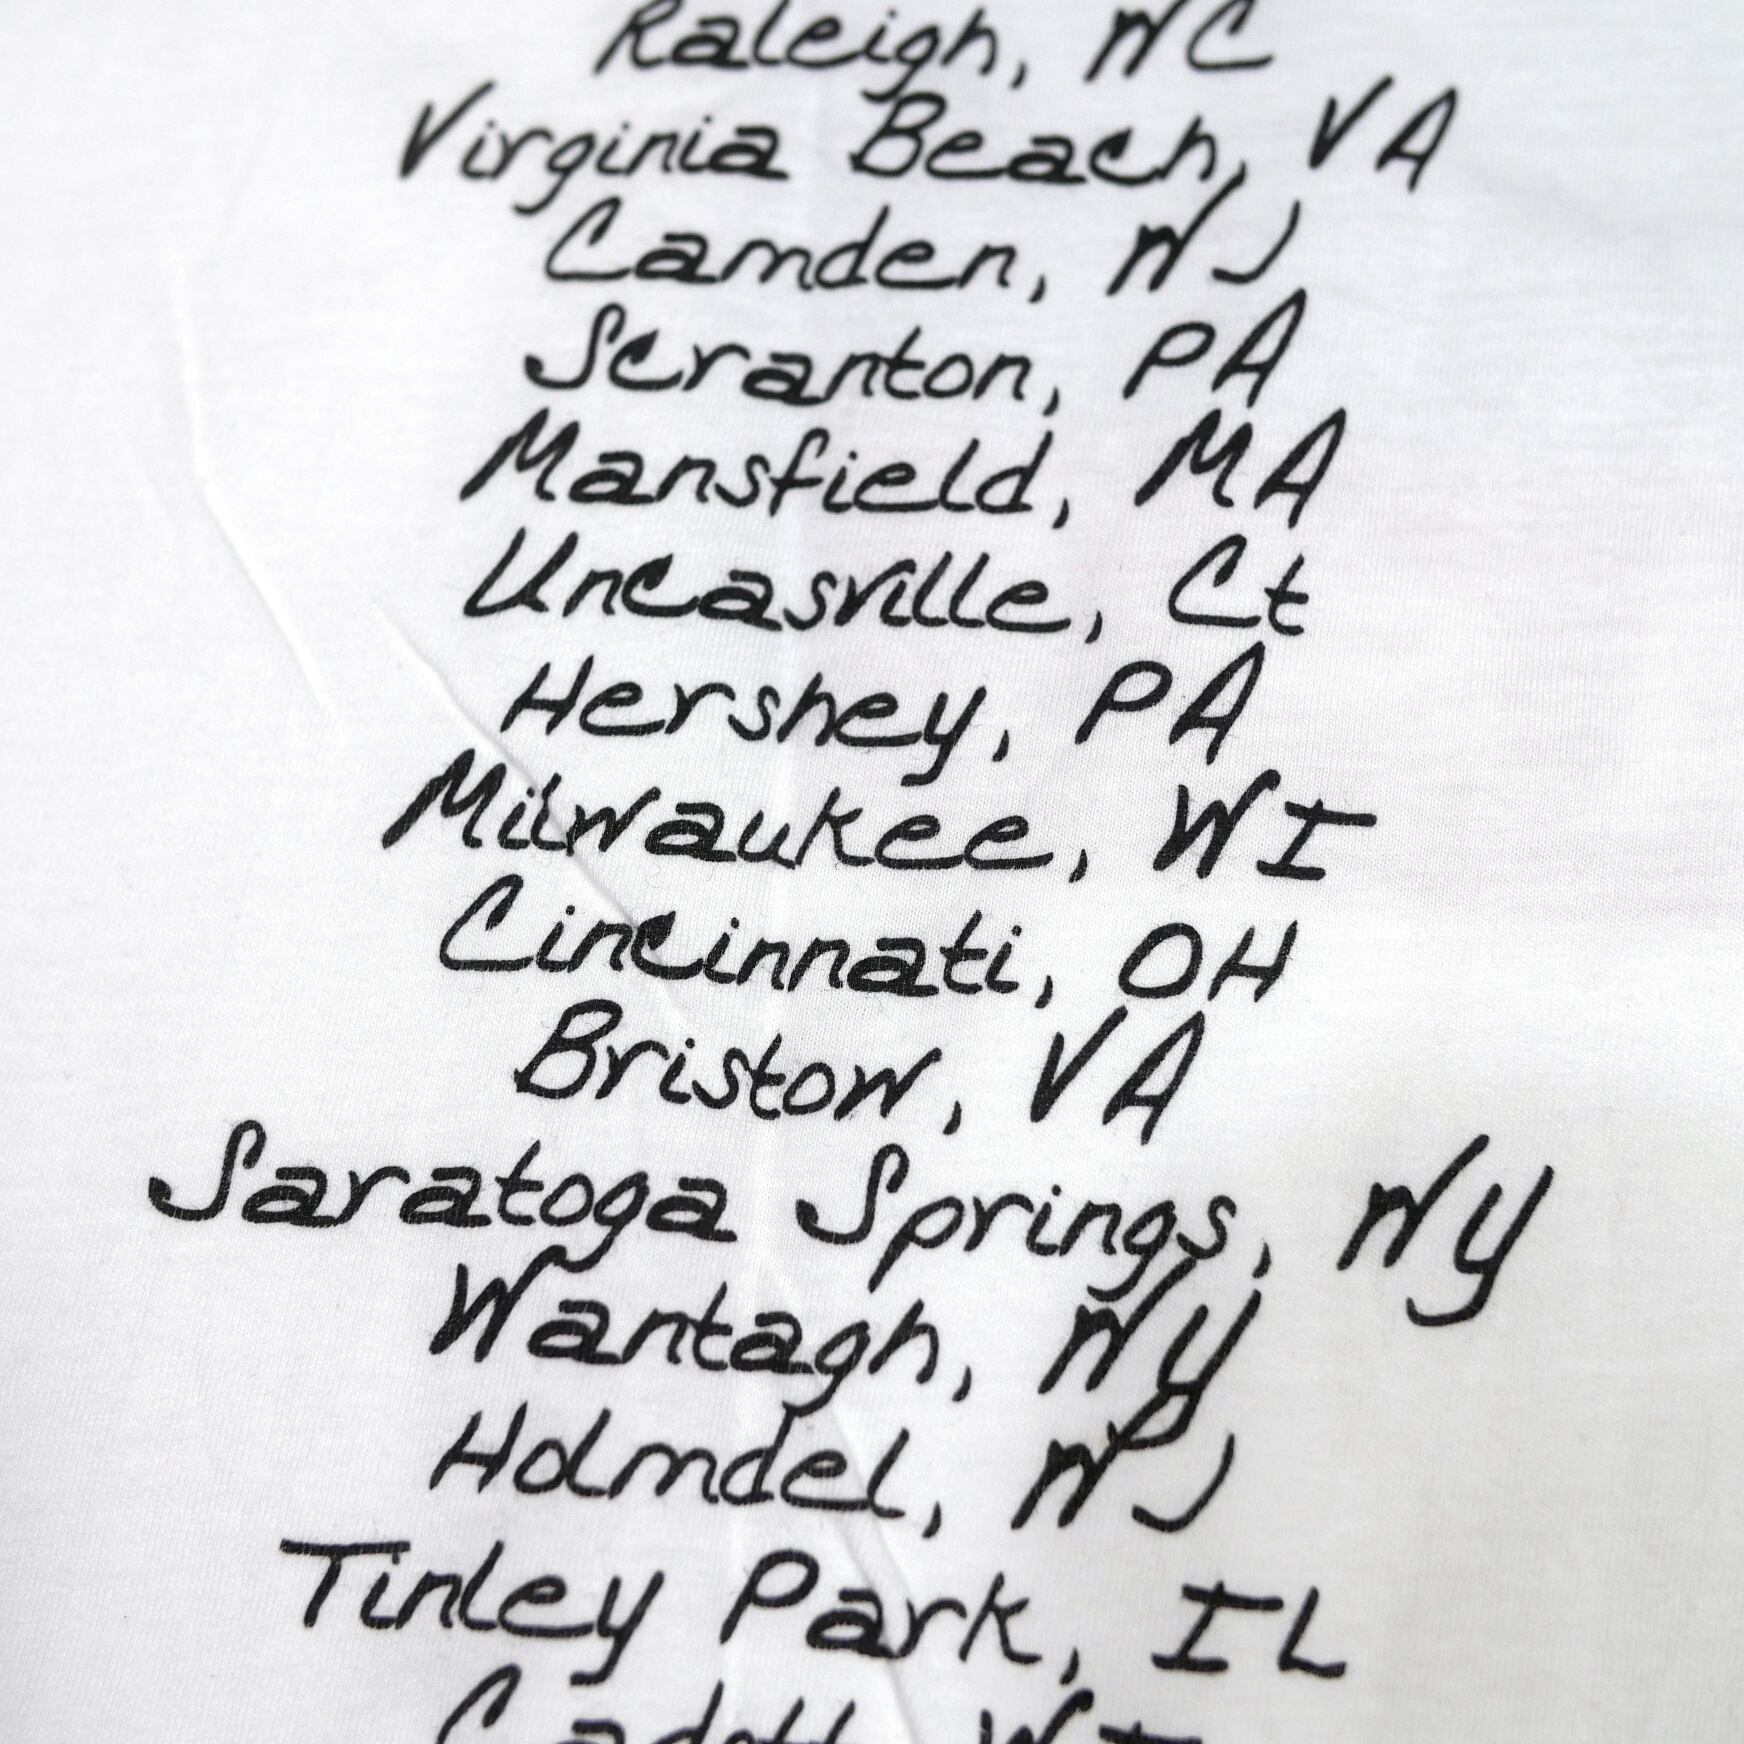 Raleigh, NC
Virginia Beach, VA
Camden, NJ
Scranton, PA
Mansfield, MA
Uncasville, Ct
Hershey, PA
Milwaukee, WI
Cincinnati, OH
Bristow, VA
Saratoga Springs, NY
Wantagh, NY
Holmdel, NJ
Tinley Park, IL
Cadott, WI